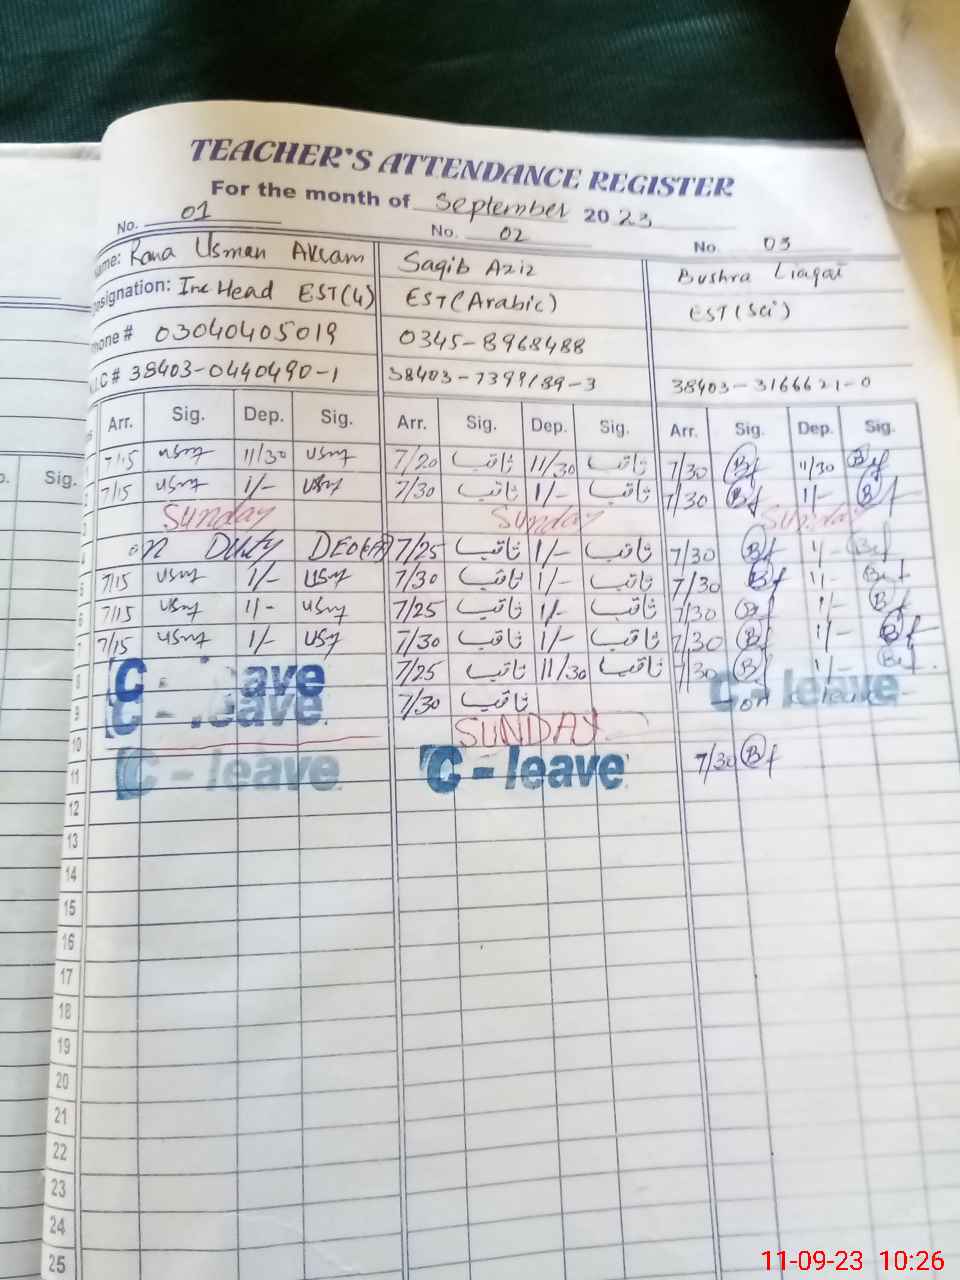 TEACHER'S ATTENDANCE REGISTER
For the month of September 2023
No. 01 No. 02 No. 03
Name: Rana Usman Akram Saqib Aziz Bushra Liaqat
Designation: Inc Head EST(G) EST(Arabic) EST(Sci)
Phone # 03040405019 0345-8968488
N.I.C# 38403-0440490-1 38403-7399189-3 38403-3166621-0
Arr. Sig. Dep. Sig. Arr. Sig. Dep. Sig. Arr. Sig. Dep. Sig.
Sig.
7/15 11/30 7/20 ثاقب 11/30 ثاقب 7/30 Bf 11/30 Bf
7/15 1/- 7/30 ثاقب 1/- ثاقب 7/30 Bf 1/- Bf
3 Sunday Sunday Sunday
4 on Duty 7/25 ثاقب 1/- ثاقب 7/30 Bf 1/- Bf
5 7/15 1/- 7/30 ثاقب 1/- ثاقب 7/30 Bf 1/- Bf
6 7/15 1/- 7/25 ثاقب 1/- ثاقب 7/30 Bf 1/- Bf
7 7/15 1/- 7/30 ثاقب 1/- ثاقب 7/30 Bf 1/- Bf
8 C - leave 7/25 ثاقب 11/30 ثاقب 7/30 Bf 1/- Bf
9 C - leave 7/30 ثاقب C - leave
10 SUNDAY
11 C - leave C - leave 7/30 Bf
12
13
14
15
16
17
18
19
20
21
22
23
24
25
11-09-23 10:26